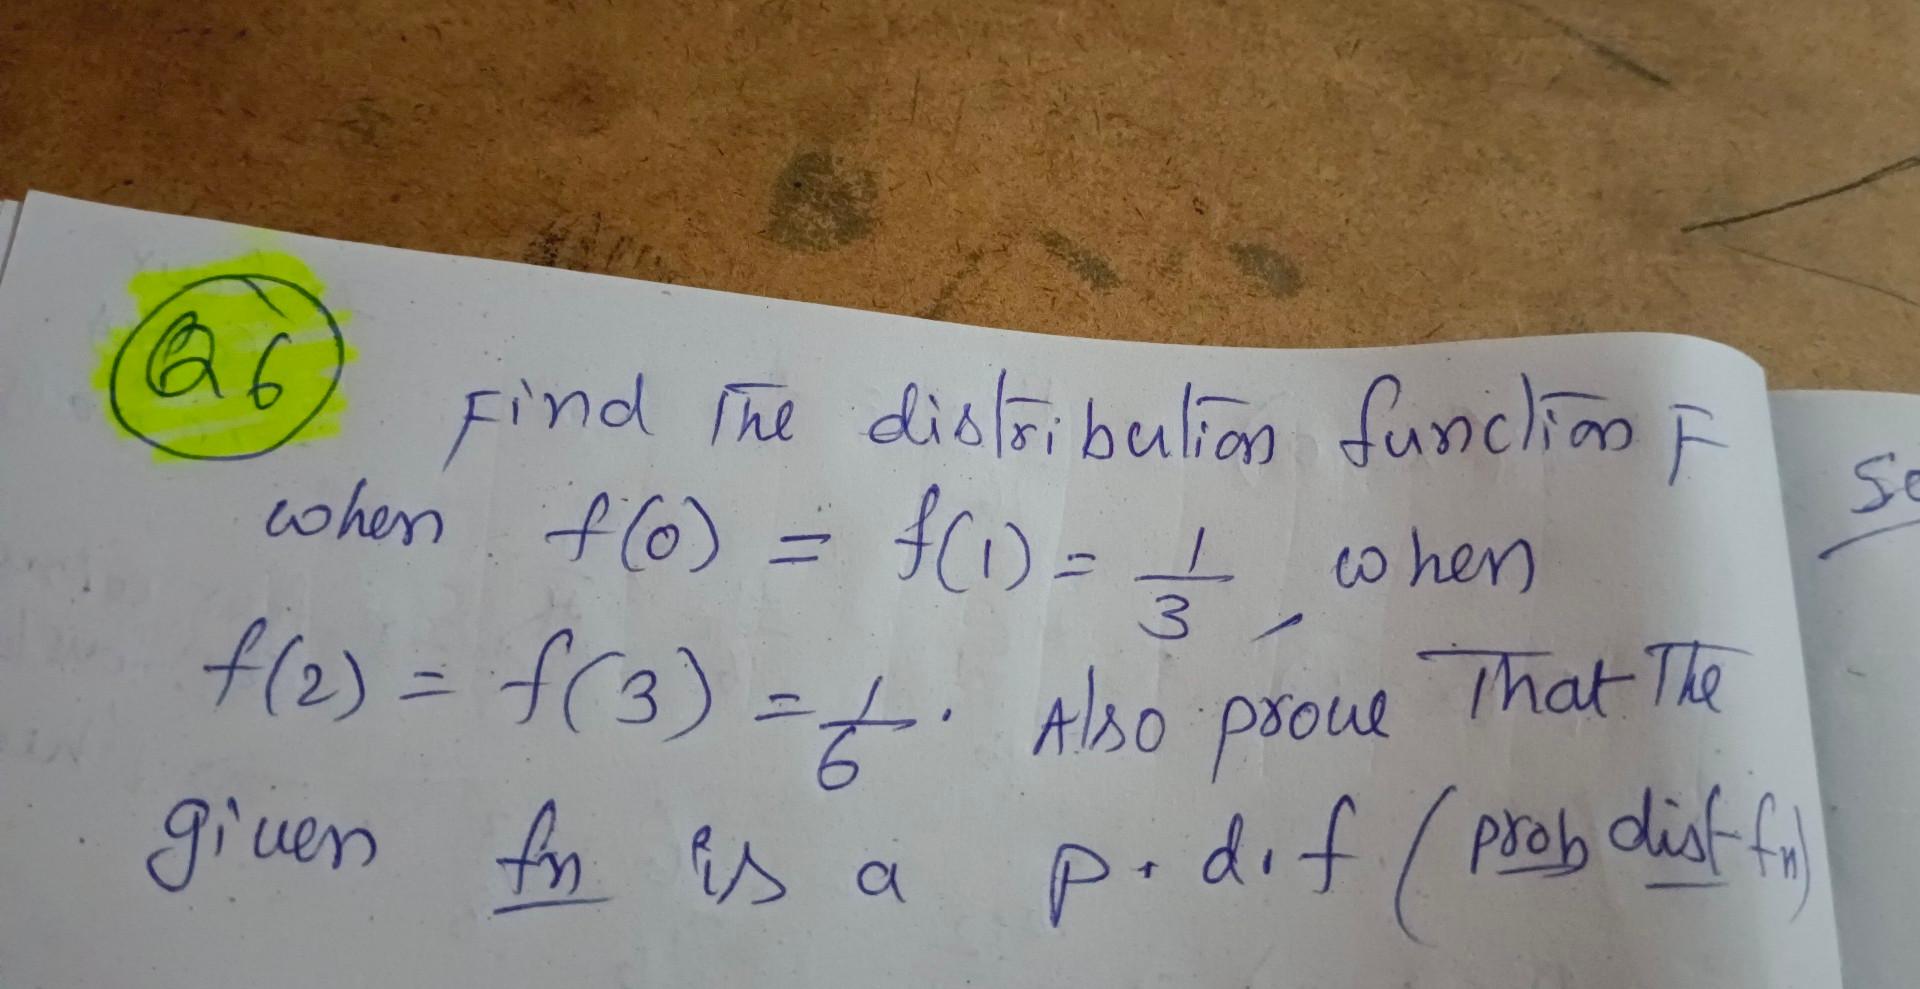 Q6
Find The distribution function F
when f(0) = f(1) = 1/3, when
f(2) = f(3) = 1/6. Also prove That The
given fn is a p.d.f (prob dist fn)